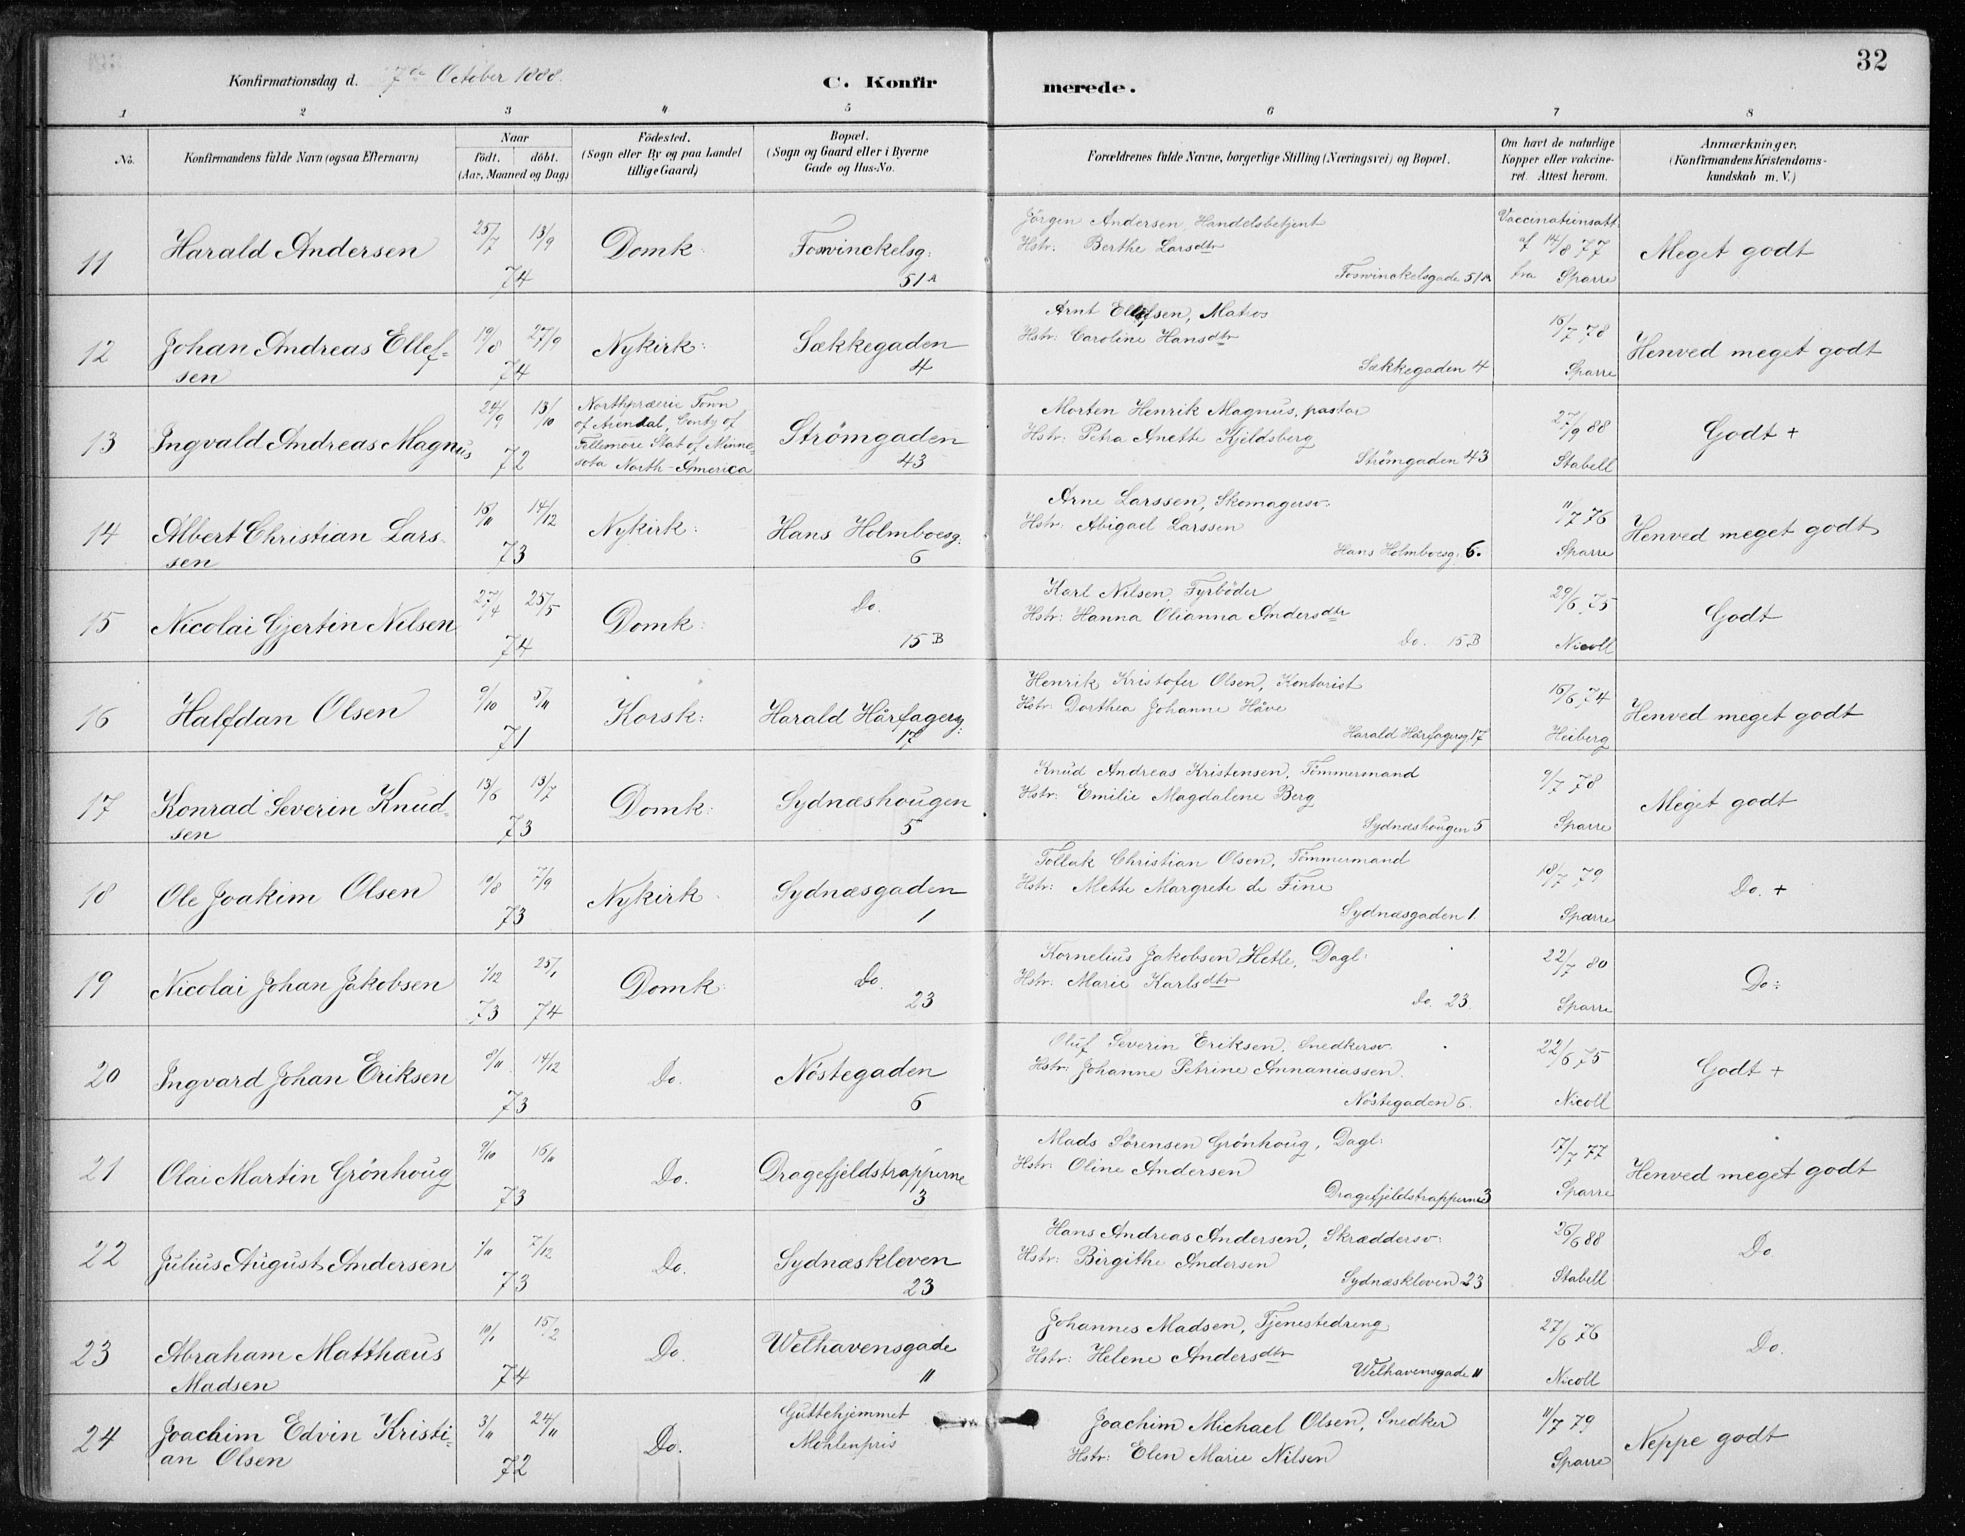 32
Konfirmationsdag d. 7de October 1888.
C. Konfirmerede.
1 2 3 4 5 6 7 8
No. Konfirmandens fulde Navn (ogsaa Efternavn) Naar födt. döbt. (Aar, Maaned og Dag) Födested. (Sogn eller By og paa Landet tillige Gaard) Bopæl. (Sogn og Gaard eller i Byerne Gade og Hus-No. Forældrenes fulde Navne, borgerlige Stilling (Næringsvei) og Bopæl. Om havt de naturlige Kopper eller vakcineret. Attest herom. Anmærkninger. (Konfirmandens Kristendomskundskab m. V.)
11 Harald Andersen 25/7 13/9 74 Domk: Fosvinckelsg: 51A
Jörgen Andersen, Handelsbetjent
Hstr: Berthe Larsdtr
Fosvinckelsgade 51A
Vaccinationsatt. af 14/8 77 fra Sparre
Meget godt
12 Johan Andreas Ellefsen 19/8 27/9 74 Nykirk: Sækkegaden 4
Arnt Ellefsen, Matros
Hstr: Caroline Hansdtr
Sækkegaden 4
16/7 78 Sparre
Henved meget godt
13 Ingvald Andreas Magnus 24/9 13/10 72
Northpræerie Town
of Arendal, Conty of
Fellemore Stat of Minne-
sota North-America
Strömgaden 43
Morten Henrik Magnus, pastor
Hstr: Petra Anette Kjeldsberg
Strömgaden 43
27/9 88 Stabell
Godt +
14 Albert Christian Larssen 16/11 14/12 73 Nykirk: Hans Holmboesg. 6
Arne Larssen, Skomagersv.
Hstr: Abigael Larssen
Hans Holmboesg. 6.
11/7 76 Sparre
Henved meget godt
15 Nicolai Gjertin Nilsen 27/4 25/5 74 Domk: Do. 15B
Karl Nilsen, Fyrböder
Hstr: Hanna Olianna Andersdtr
Do. 15B
29/6 75 Nicoll
Godt
16 Halfdan Olsen 9/10 5/11 71 Korsk: Harald Hårfagersg: 17
Henrik Kristofer Olsen, Kontorist
Hstr: Dorthea Johanne Håve
Harald Hårfagersg. 17
16/6 74 Heiberg
Henved meget godt
17 Konrad Severin Knudsen 13/6 13/7 73 Domk: Sydnæshougen 5
Knud Andreas Kristensen, Tömmermand
Hstr: Emilie Magdalene Berg
Sydnæshougen 5
9/7 78 Sparre
Meget godt
18 Ole Joakim Olsen 10/8 7/9 73 Nykirk: Sydnæsgaden 1
Tollak Christian Olsen, Tömmermand
Hstr: Mette Margrete de Fine
Sydnæsgaden 1.
18/7 79 Sparre
Do. +
19 Nicolai Johan Jakobsen 1/12 73 25/1 74 Domk: Do. 23
Kornelius Jakobsen Hetle, Dagl:
Hstr: Marie Karlsdtr
Do. 23.
22/7 80 Sparre
Do÷
20 Ingvard Johan Eriksen 8/11 14/12 73 Do. Nöstegaden 6
Oluf Severin Eriksen, Snedkersv.
Hstr: Johanne Petrine Annaniassen.
Nöstegaden 6.
22/6 75 Nicoll
Godt +
21 Olai Martin Grönhoug 9/10 16/11 73 Do. Dragefjeldstrapperne 3
Mads Sörensen Grönhoug, Dagl:
Hstr: Oline Andersen
Dragefjeldstrapperne 3
17/7 77 Sparre
Henved meget godt
22 Julius August Andersen 1/11 7/12 73 Do. Sydnæskleven 23
Hans Andreas Andersen, Skræddersv:
Hstr: Birgithe Andersen
Sydnæskleven 23
26/6 88 Stabell
Do
23 Abraham Matthæus Madsen 10/1 15/2 74 Do. Welhavensgade 11
Johannes Madsen, Tjenestedreng
Hstr: Helene Andersdtr
Welhavensgade 11
27/6 76 Nicoll
Do.
24 Joachim Edvin Kristian Olsen 3/11 24/11 72 Do. Guttehjemmet Möhlenpris
Joachim Michael Olsen, Snedker
Hstr: Elen Marie Nilsen
11/7 79 Sparre
Neppe godt